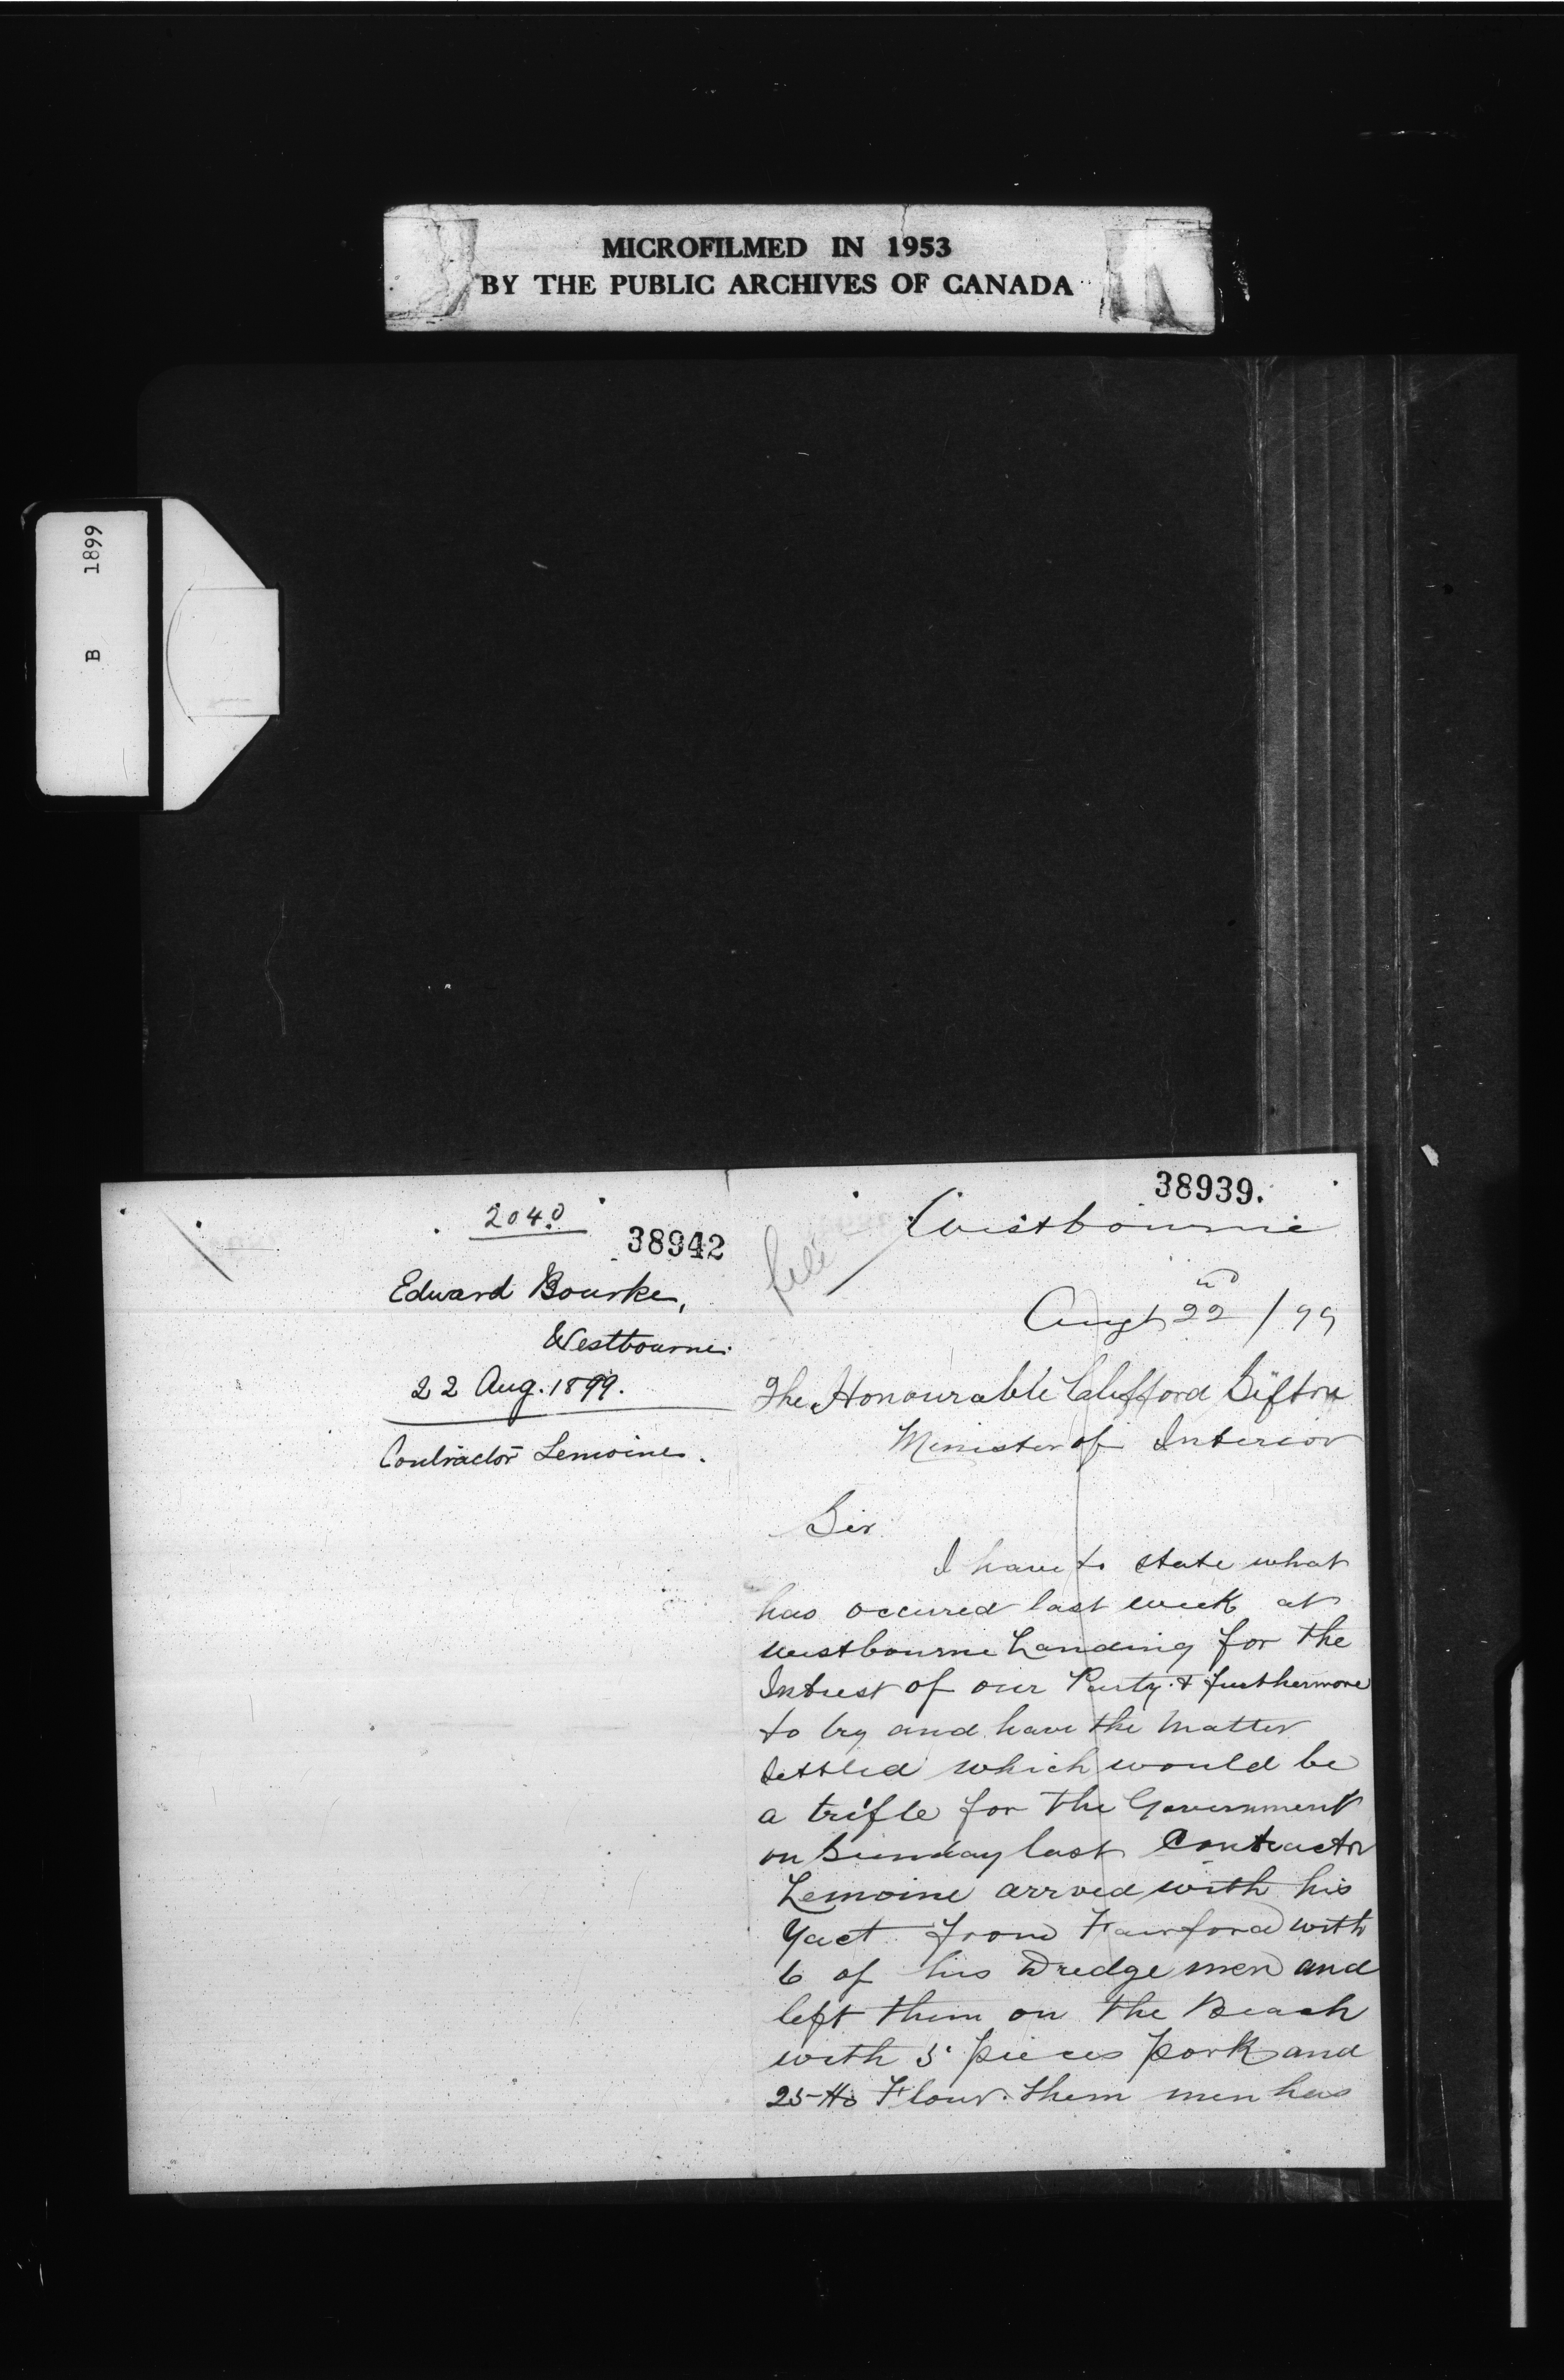 MICROFILMED IN 1953
BY THE PUBLIC ARCHIVES OF CANADA
B 1899
2040
38942
Edward Bourke,
Westbourne.
22 Aug. 1899.
Contractor Lemoine.
38939.
file
Westbourne
Augt 22nd / 99
The Honourable Clifford Sifton
Minister of Interior
Sir
I have to state what
has occured last week at
Westbourne Landing for the
Intrest of our Party & furthermore
to try and have the Matter
Settled which would be
a trifle for the Government
on Sunday last Contractor
Lemoine arrved with his
Yact from Fairford with
6 of his Dredge men and
left them on the Beach
with 5 pieces pork and
25 lbs Flour. them men has